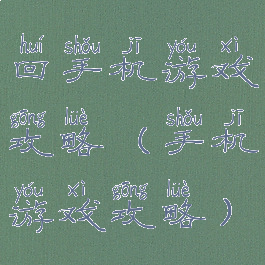 huí shǒu jī yóu xì
回手机游戏
gōng lüè shǒu jī
攻略（手机
yóu xì gōng lüè
游戏攻略）